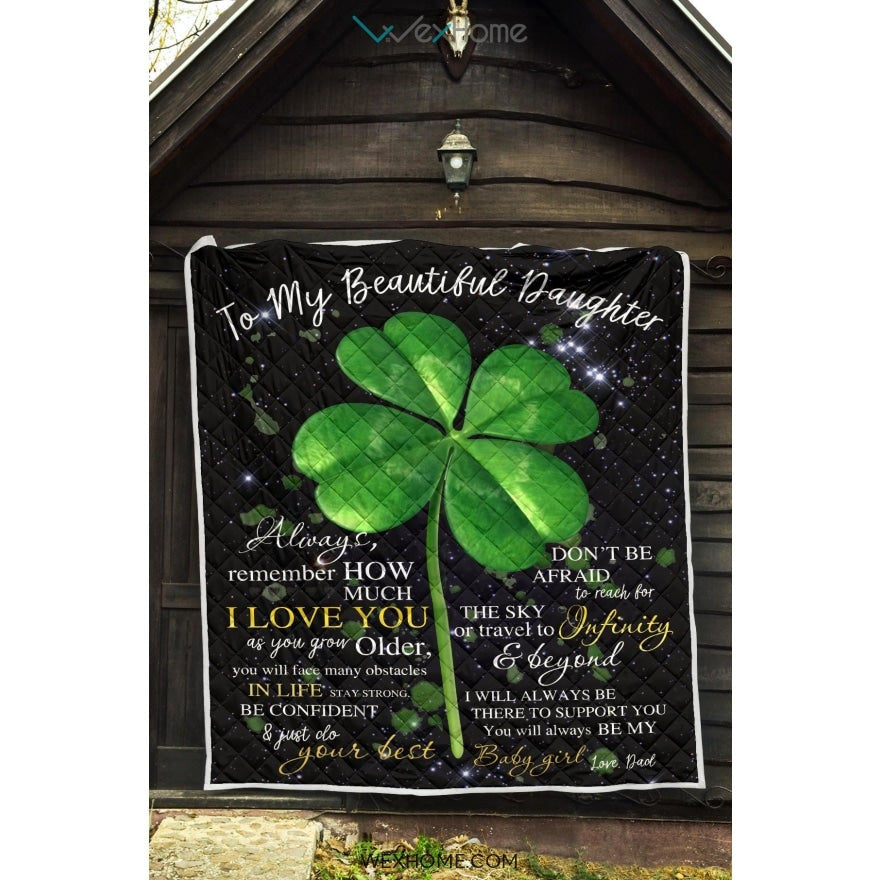 WexHome
To My Beautiful Daughter
Always,
remember HOW
MUCH
I LOVE YOU
as you grow Older,
you will face many obstacles
IN LIFE STAY STRONG,
BE CONFIDENT
& just do
your best
DON'T BE
AFRAID
to reach for
THE SKY
or travel to Infinity
& beyond
I WILL ALWAYS BE
THERE TO SUPPORT YOU
You will always BE MY
Baby girl Love, Dad
WEXHOME.COM